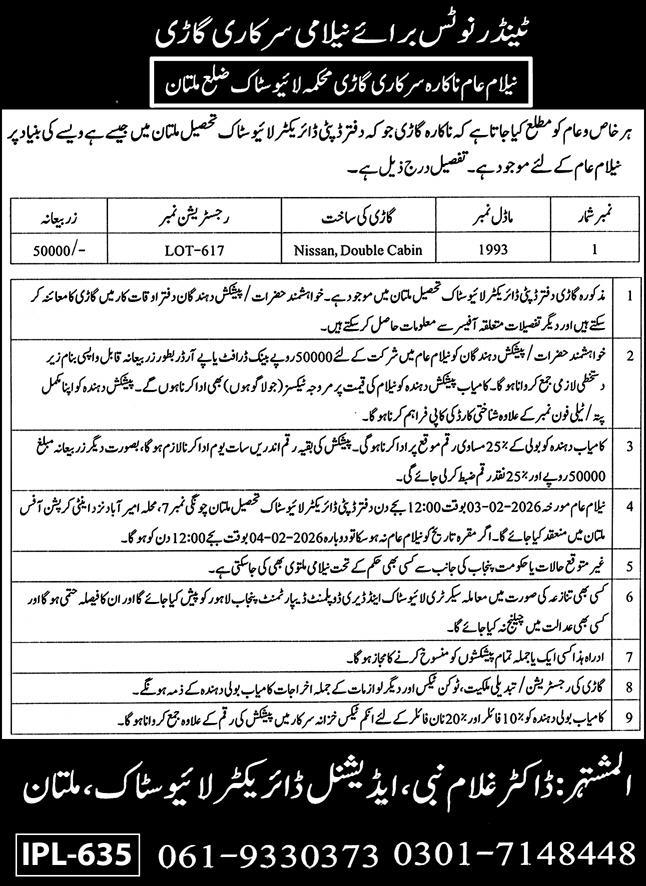 ٹینڈر نوٹس برائے نیلامی سرکاری گاڑی
نیلام عام ناکارہ سرکاری گاڑی محکمہ لائیوسٹاک ضلع ملتان
ہر خاص و عام کو مطلع کیا جاتا ہے کہ ناکارہ گاڑی جو کہ دفتر ڈپٹی ڈائریکٹر لائیوسٹاک تحصیل ملتان میں جیسے ہے ویسے کی بنیاد پر
نیلام عام کے لئے موجود ہے۔ تفصیل درج ذیل ہے۔
نمبر شمار ماڈل نمبر گاڑی کی ساخت رجسٹریشن نمبر زر بیعانہ
1 1993 Nissan, Double Cabin LOT-617 50000/-
1 مذکورہ گاڑی دفتر ڈپٹی ڈائریکٹر لائیوسٹاک تحصیل ملتان میں موجود ہے۔ خواہشمند حضرات / پیشکش دہندگان دفتر اوقات کار میں گاڑی کا معائنہ کر
سکتے ہیں اور دیگر تفصیلات متعلقہ آفیسر سے معلومات حاصل کر سکتے ہیں۔
2 خواہشمند حضرات / پیشکش دہندگان کو نیلام عام میں شرکت کے لئے 50000 روپے بینک ڈرافٹ یا پے آرڈر بطور زر بیعانہ قابل واپسی بنام زیر
دستخطی لازمی جمع کروانا ہوگا۔ کامیاب پیشکش دہندہ کو نیلام کی قیمت پر مروجہ ٹیکسز (جو لاگو ہوں) بھی ادا کرنا ہوں گے۔ پیشکش دہندہ کو اپنا مکمل
پتہ / ٹیلی فون نمبر کے علاوہ شناختی کارڈ کی کاپی فراہم کرنا ہوگا۔
3 کامیاب دہندہ کو بولی کے 25% مساوی رقم موقع پر ادا کرنا ہوگی۔ پیشکش کی بقیہ رقم اندریں سات یوم ادا کرنا لازم ہوگا، بصورت دیگر زر بیعانہ مبلغ
50000 روپے اور 25% نقد رقم ضبط کر لی جائے گی۔
4 نیلام عام مورخہ 03-02-2026 بوقت 12:00 بجے دن دفتر ڈپٹی ڈائریکٹر لائیوسٹاک تحصیل ملتان چونگی نمبر 7، محلہ امیر آباد نزد اینٹی کرپشن آفس
ملتان میں منعقد کیا جائے گا۔ اگر مقررہ تاریخ کو نیلام عام نہ ہو سکا تو دوبارہ 04-02-2026 بوقت 12:00 بجے دن کو ہوگا۔
5 غیر متوقع حالات یا حکومت پنجاب کی جانب سے کسی بھی حکم کے تحت نیلامی ملتوی بھی کی جا سکتی ہے۔
6 کسی بھی تنازعہ کی صورت میں معاملہ سیکرٹری لائیوسٹاک اینڈ ڈیری ڈویلپمنٹ ڈیپارٹمنٹ پنجاب لاہور کو پیش کیا جائے گا اور ان کا فیصلہ حتمی ہوگا اور
کسی بھی عدالت میں چیلنج نہ کیا جائے گا۔
7 ادارہ ہذا کسی ایک یا جملہ تمام پیشکشوں کو منسوخ کرنے کا مجاز ہوگا۔
8 گاڑی کی رجسٹریشن / تبدیلی ملکیت، ٹوکن ٹیکس اور دیگر لوازمات کے جملہ اخراجات کامیاب بولی دہندہ کے ذمہ ہونگے۔
9 کامیاب بولی دہندہ کو 10% فائلر اور 20% نان فائلر کے لئے انکم ٹیکس خزانہ سرکار میں پیشکش کی رقم کے علاوہ جمع کروانا ہوگا۔
المشتہر: ڈاکٹر غلام نبی، ایڈیشنل ڈائریکٹر لائیوسٹاک، ملتان
IPL-635 061-9330373 0301-7148448